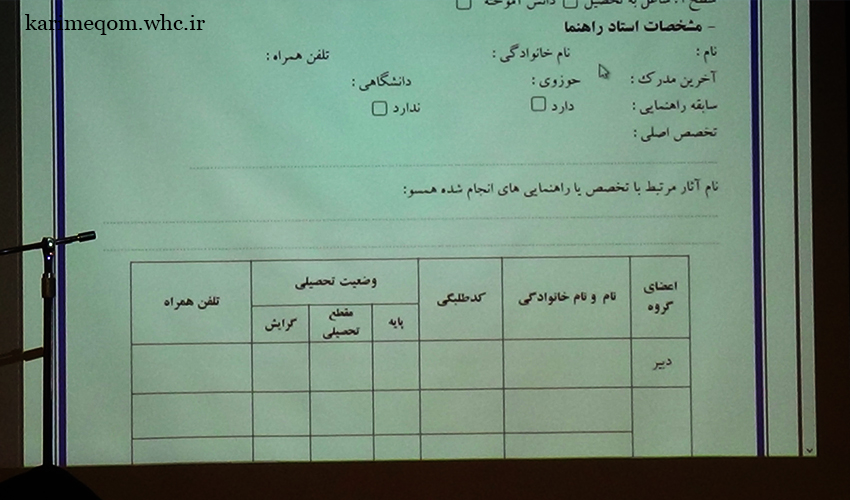 karimeqom.whc.ir
شاغل به تحصیل □ دانش آموخته □
- مشخصات استاد راهنما
نام : نام خانوادگی : تلفن همراه :
آخرین مدرک : حوزوی : دانشگاهی :
سابقه راهنمایی : دارد □ ندارد □
تخصص اصلی :
نام آثار مرتبط با تخصص یا راهنمایی های انجام شده همسو:
اعضای گروه نام و نام خانوادگی کدطلبگی وضعیت تحصیلی تلفن همراه
پایه مقطع تحصیلی گرایش
دبیر